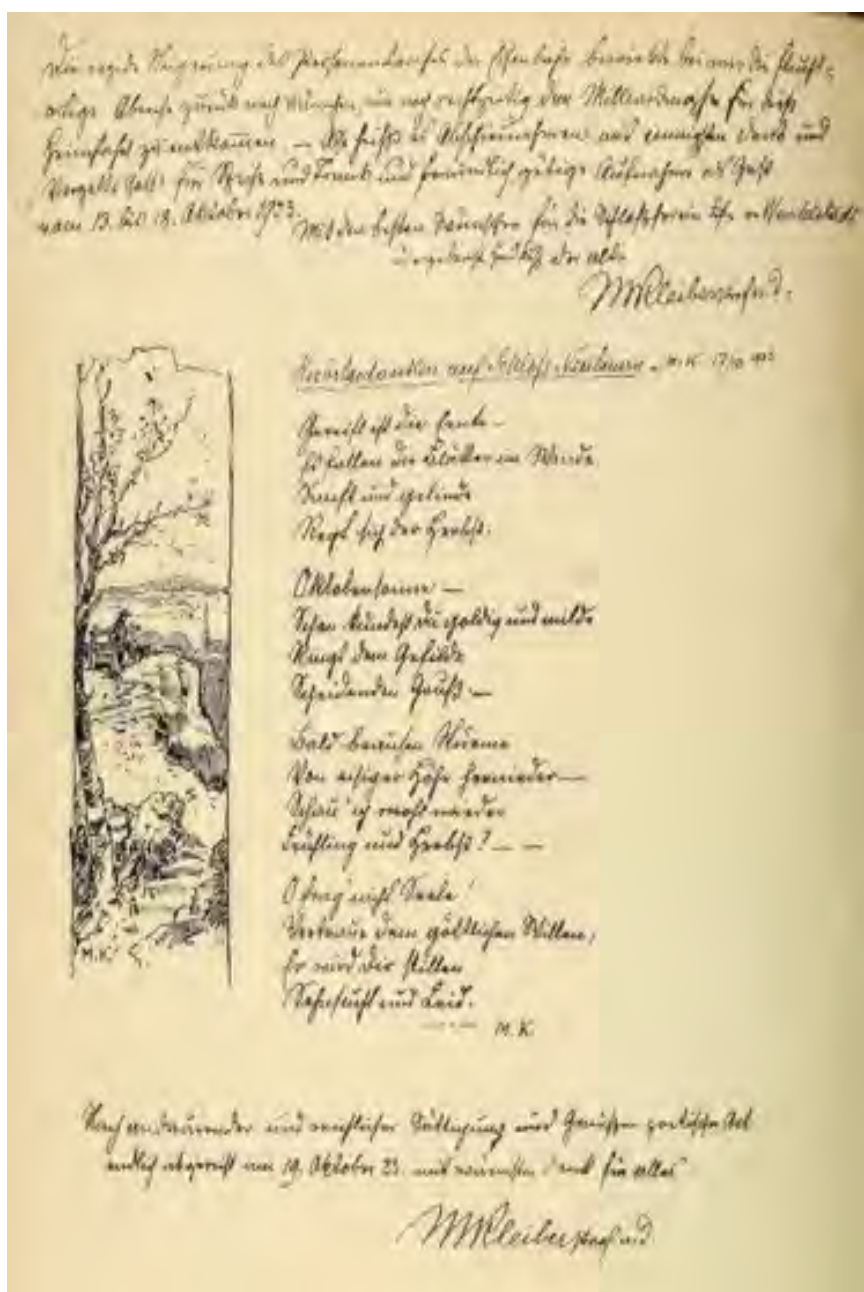 Die rapide Steigerung des Personentarifes der Eisenbahn bewirkte bei mir die flucht-
artige Abreise zurück nach München, um noch rechtzeitig der Milliardenziffer für diese
Heimfahrt zu entkommen. — Also heißt es Abschiednehmen und innigsten Dank und
Vergelts Gott! für Speise und Trank und freundlich gütige Aufnahme als Gast
vom 13. bis 18. Oktober 1923.
Mit den besten Wünschen für die Schloßherrin
der alte
MKleiber
Herbstgedanken auf Schloß Neubeuern. M.K. 17/10 1923
Gereift ist die Ernte —
Es fallen die Blätter im Winde
Sanft und gelinde
Regt sich der Herbst.
Oktobersonne —
Schon kündest du goldig und milde
Rings dem Gefilde
Scheidenden Gruß. —
Bald brausen Stürme
Von eisiger Höhe hernieder —
Schau' ich wohl wieder
Frühling und Herbst? — —
O frag' nicht Seele!
Vertraue dem göttlichen Willen,
Er wird dir stillen
Sehnsucht und Leid.
M.K
M.K.
Nach andauernder und reichlicher Sättigung und Genüssen poetischer Art
endlich abgereist am 19. Oktober 23. mit wärmstem Dank für alles
MKleiber